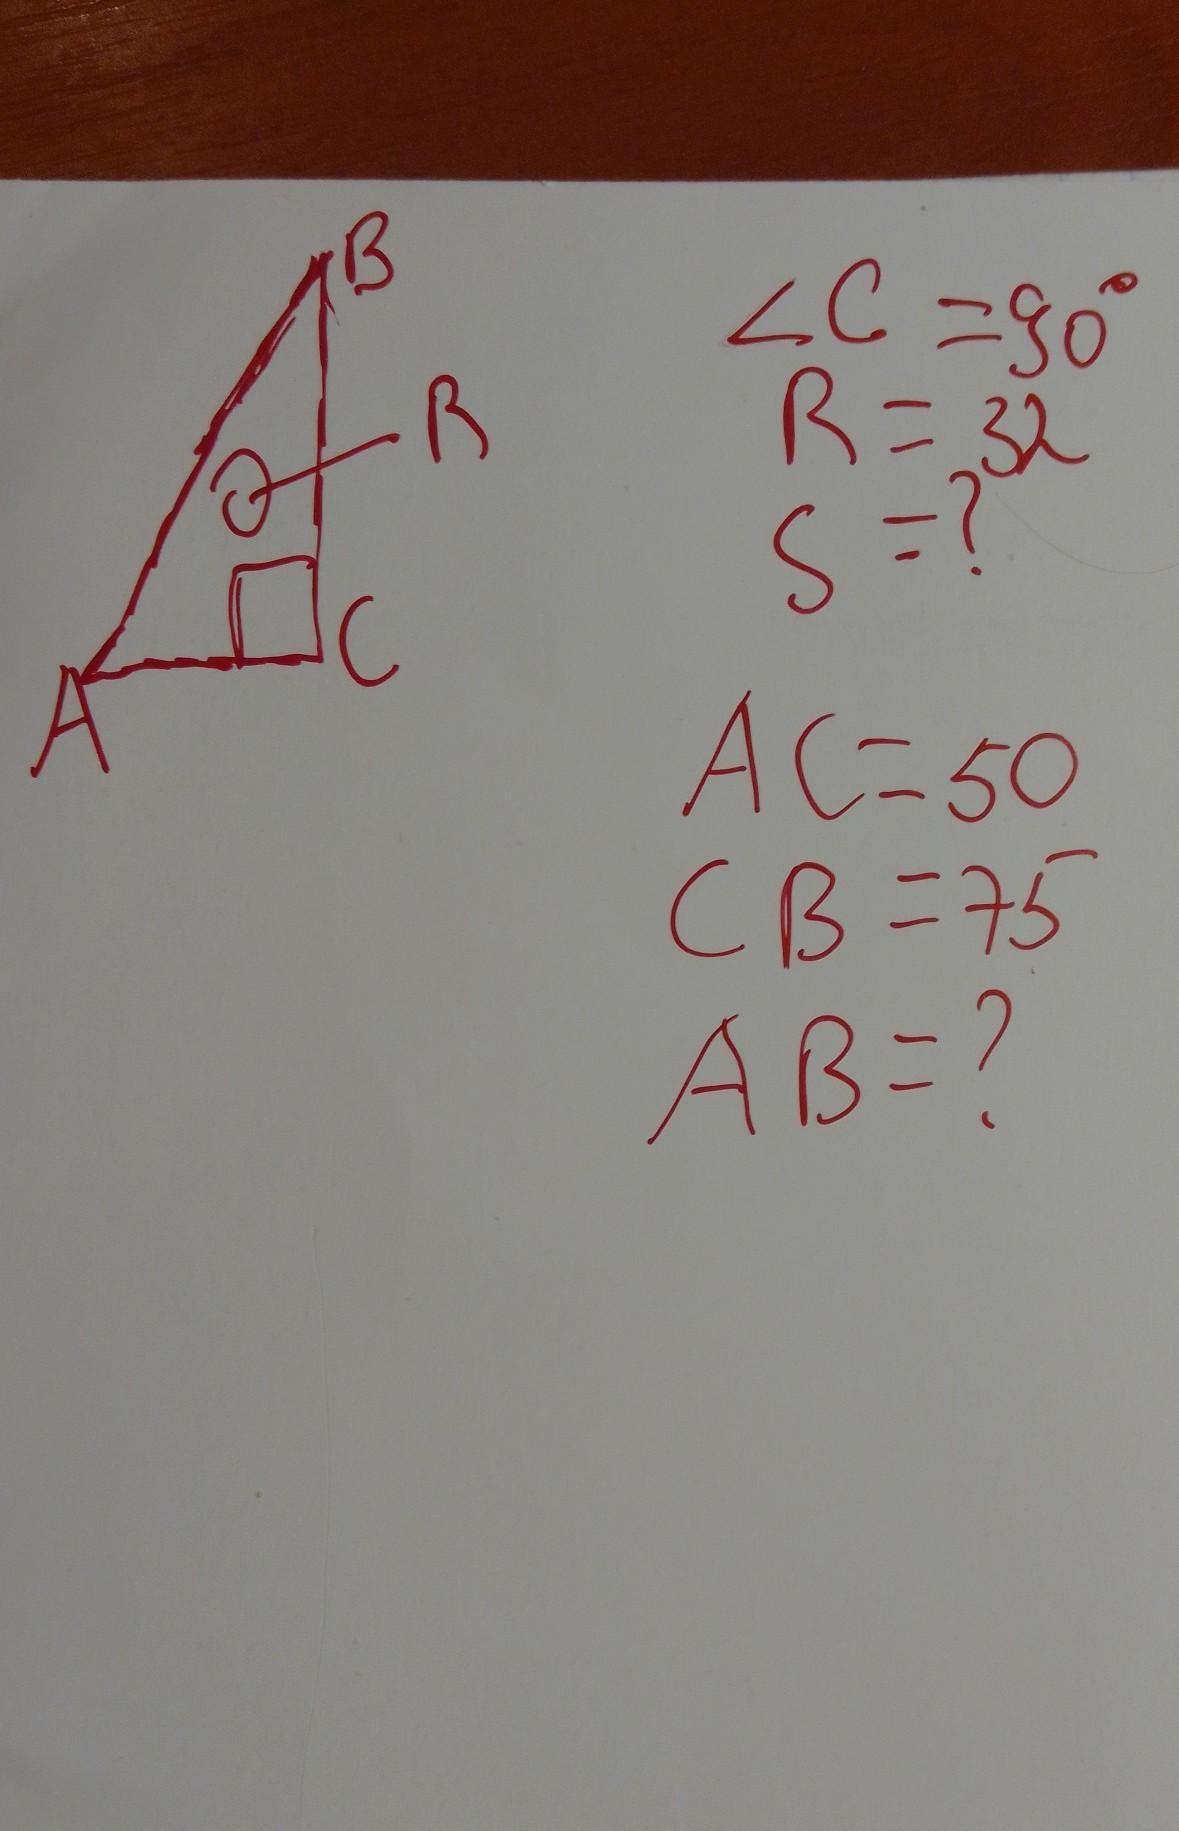 B
R
C
A
∠C = 90°
R = 32
S = ?
AC = 50
CB = 75
AB = ?